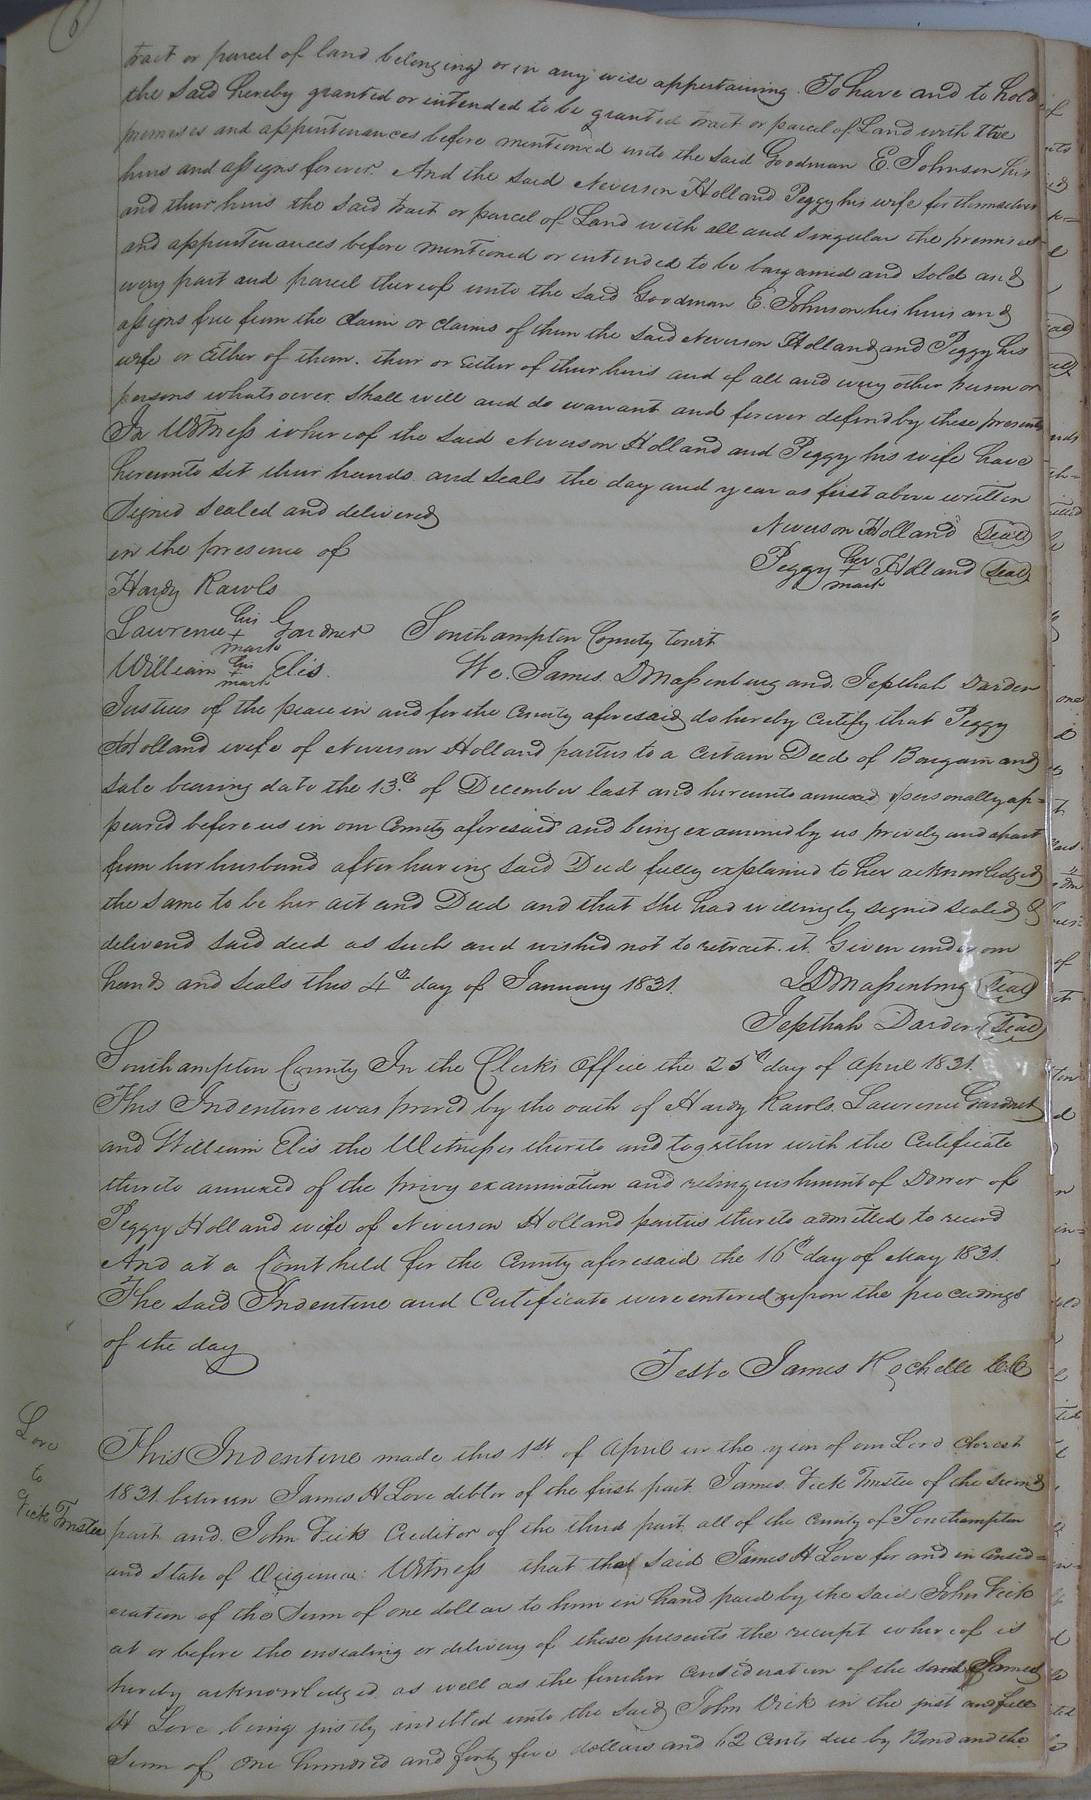 6
tract or parcel of land belonging or in any wise appertaining. To have and to hold
the said hereby granted or intended to be granted tract or parcel of Land with the
premises and appurtenances before mentioned unto the said Goodman E. Johnson his
heirs and assigns forever. And the said Neverson Holland Peggy his wife for themselves
and their heirs the said tract or parcel of Land with all and singular the premises
and appurtenances before mentioned or intended to be bargained and sold and
every part and parcel thereof unto the said Goodman E. Johnson his heirs and
assigns free from the claim or claims of them the said Neverson Holland and Peggy his
wife or Either of them. their or Either of their heirs and of all and every other person or
persons whatsoever shall will and do warrant and forever defend by these presents
In Witness whereof the said Neverson Holland and Peggy his wife have
hereunto set their hands and seals the day and year as first above written
Signed sealed and delivered
in the presence of
Neverson Holland Seal
Peggy her + mark Holland Seal
Hardy Rawls
Lawrence his + mark Gardner
William his + mark Elis.
Southampton County Court
We. James D Massenburg and. Jepthah Darden
Justices of the peace in and for the County aforesaid do hereby certify that Peggy
Holland wife of Neverson Holland parties to a certain Deed of Bargain and
sale bearing date the 13th of December last and hereunto annexed personally ap=
peared before us in our County aforesaid and being examined by us privily and apart
from her husband after having said Deed fully explained to her acknowledged
the same to be her act and Deed and that she had willingly signed sealed &
deliverd said deed as such and wished not to retract it. Given under our
hands and seals this 4th day of January 1831.
JDMassenburg Seal
Jepthah Darden Seal
Southampton County In the Clerks Office the 25th day of April 1831.
This Indenture was proved by the oath of Hardy Rawls. Lawrence Gardner
and William Elis the Witnesses thereto and together with the Certificate
thereto annexed of the privy examination and relinquishment of Dower of
Peggy Holland wife of Neverson Holland parties thereto admitted to record
And at a Court held for the County aforesaid the 16th day of May 1831.
The said Indenture and Certificate were entered upon the proceedings
of the day
Teste James Rochelle C.C
Love
to
Vick Trustee
This Indenture made this 1st of April in the year of our Lord Christ
1831. between James H Love debtor of the first part James Vick Trustee of the second
part and. John Vick Creditor of the third part all of the County of Southampton
and State of Virginia: Witness that the said James H Love for and in consid=
eration of the Sum of one dollar to him in hand paid by the said John Vick
at or before the ensealing or delivery of these presents the receipt whereof is
hereby acknowledged as well as the further consideration of the said James
H Love being justly indebted unto the said John Vick in the just and full
Sum of One hundred and forty five dollars and 62 Cents due by Bond and the